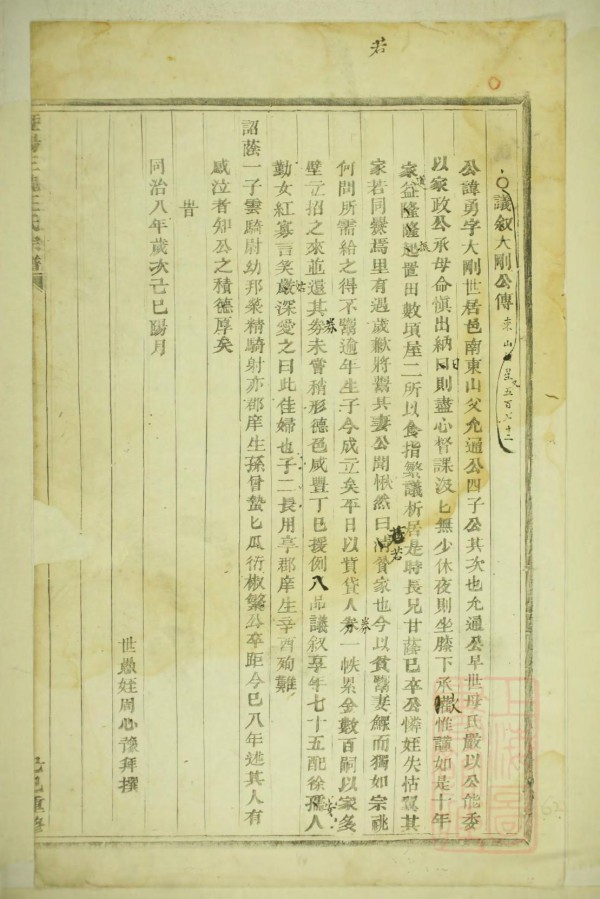 若
議叙大剛公傳 東山
公諱勇字大剛世居邑南東山父允通公四子公其次也允通公早世母氏嚴以公能委
以家政公承母命慎出納日則盡心督課汲匕無少休夜則坐膝下承歡惟謹如是十年
家益隆隆起置田數頃屋二所以食指繁議析居是時長兄甘蔭已卒公憐姪失怙翼其
家若同爨焉里有遇歲歉將鬻其妻公聞愀然曰 貧家也今以貧鬻妻鰥而獨如宗祧
何問所需給之得不鬻逾年生子今成立矣平日以貲貸人券一帙累金數百嗣以家多
壁立招之來並還其券未嘗稍形德色咸豐丁巳援例八品議叙享年七十五配徐孺人
勤女紅寡言笑 深愛之曰此佳婦也子二長用亭郡庠生辛酉殉難
詔蔭一子雲騎尉幼邦榮精騎射亦郡庠生孫曾蟄匕瓜衍椒繁公卒距今已八年述其人有
感泣者知公之積德厚矣
旹
同治八年歲次己巳陽月
世愚姪周心豫拜撰
王氏宗譜
己巳重修